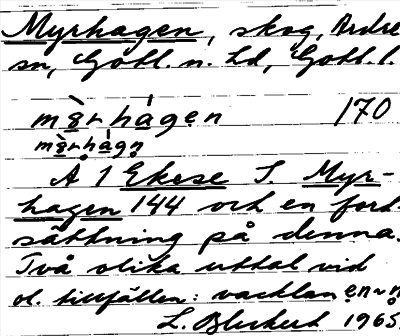 Myrhagen, skog, Ardre
sn, Gotl. n. hd, Gotl. l.
mỳrhágen 170
mỳrhágn
På 1 Ekese S. Myr-
hagen 144 och en fort-
sättning på denna.
Två olika uttal vid
ol. tillfällen: vacklan en~n
L. Bleckert 1965